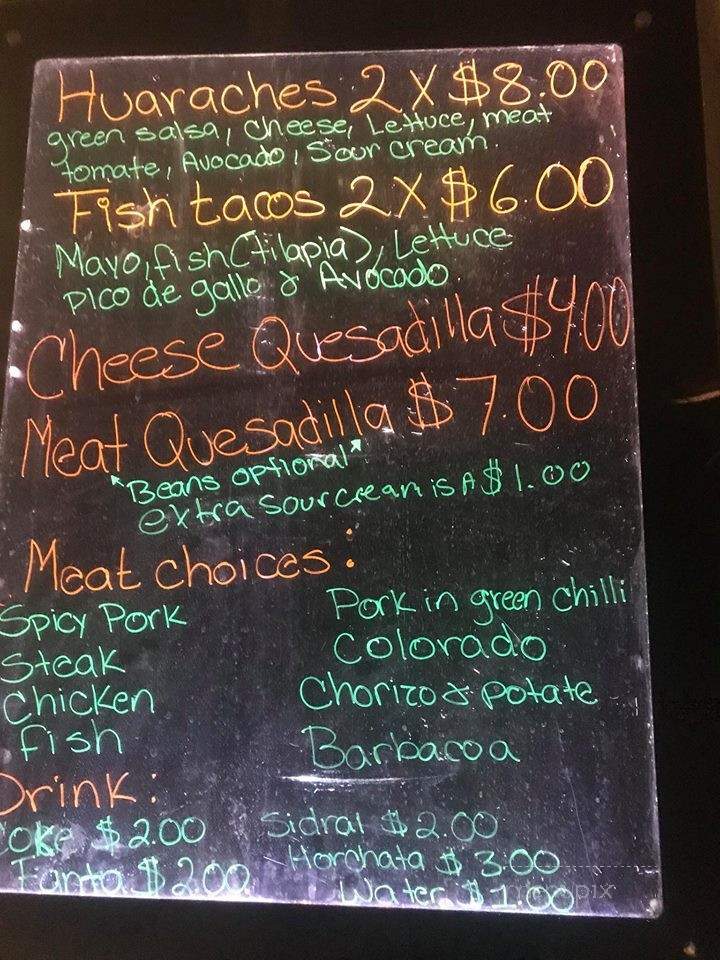 Huaraches 2 X $8.00
green salsa, cheese, Lettuce, meat
tomate, Avocado, Sour cream.
Fish tacos 2 X $6.00
Mayo, fish (tilapia), Lettuce
pico de gallo & Avocado.
Cheese Quesadilla $4.00
Meat Quesadilla $7.00
"Beans optional"
extra sour cream is A $1.00
Meat choices:
Spicy Pork Pork in green chilli
Steak Colorado
Chicken Chorizo & potate
fish Barbacoa
Drink:
Coke $2.00 Sidral $2.00
Fanta $2.00 Horchata $3.00
Water $1.00